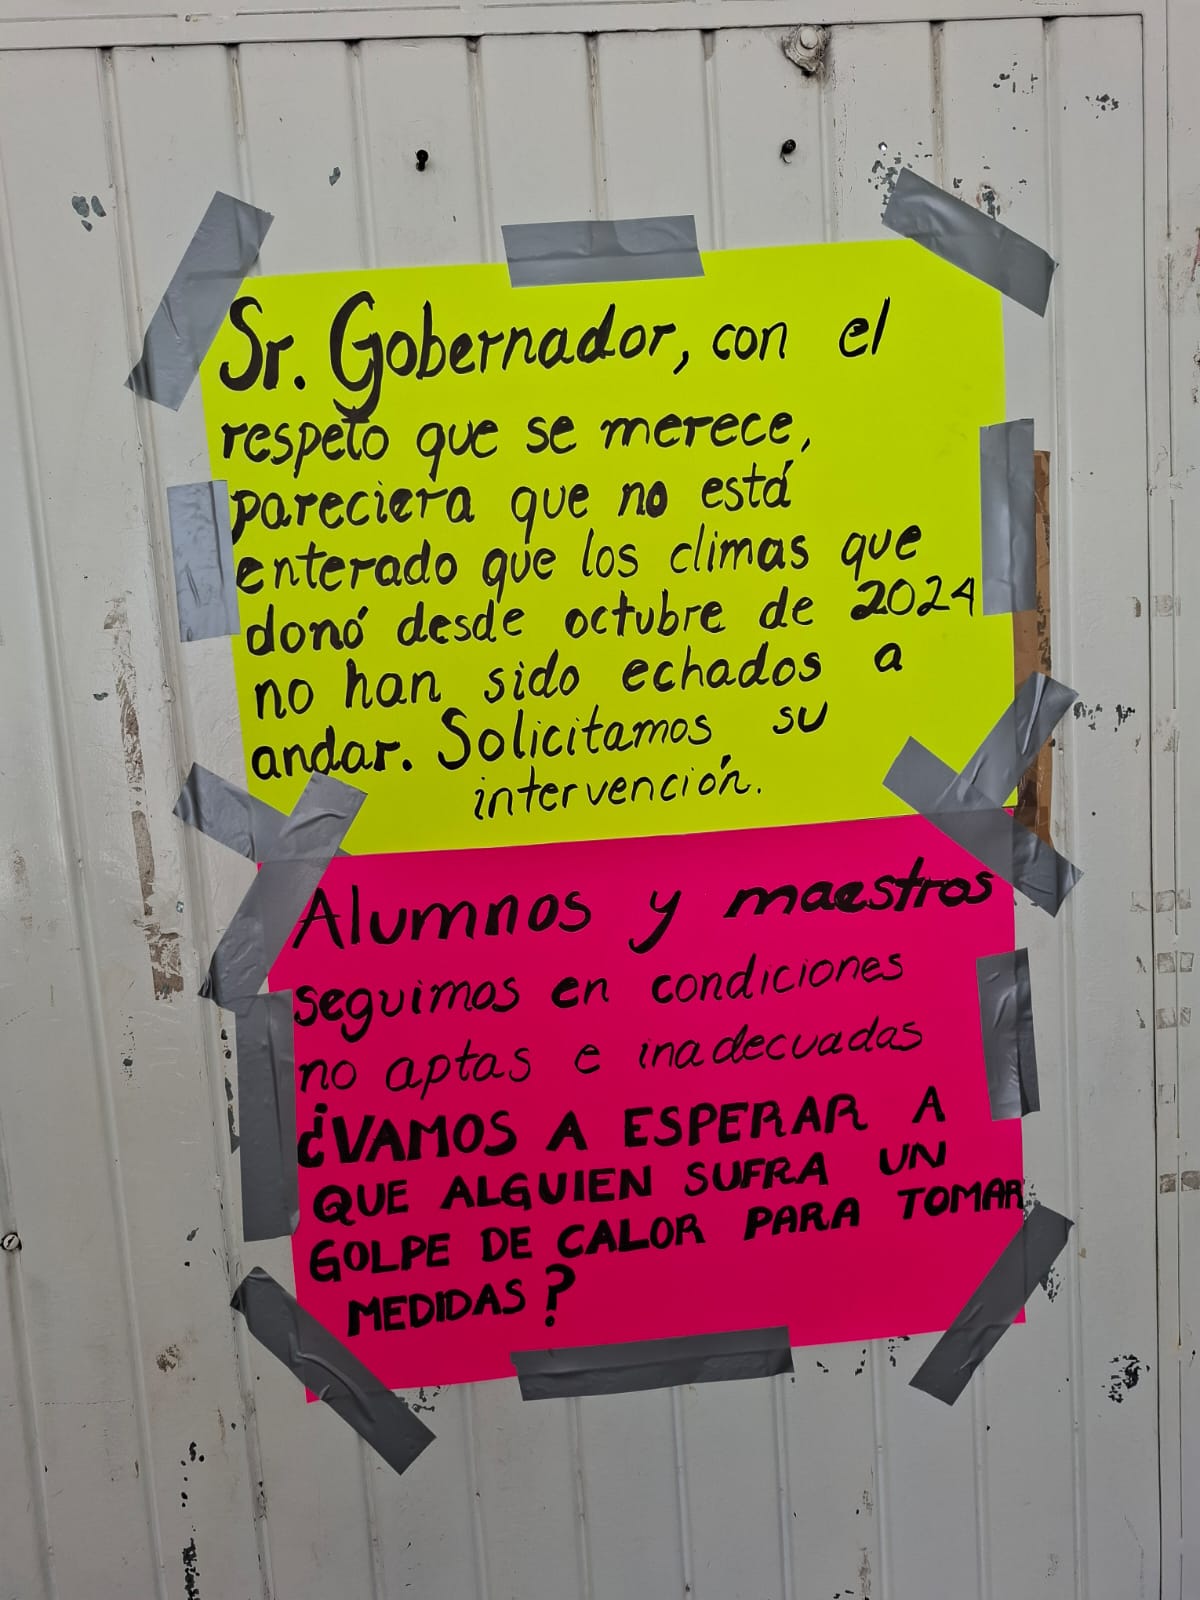 Sr. Gobernador, con el
respeto que se merece,
pareciera que no está
enterado que los climas que
donó desde octubre de 2024
no han sido echados a
andar. Solicitamos su
intervención.
Alumnos y maestros
seguimos en condiciones
no aptas e inadecuadas
¿VAMOS A ESPERAR A
QUE ALGUIEN SUFRA UN
GOLPE DE CALOR PARA TOMAR
MEDIDAS?